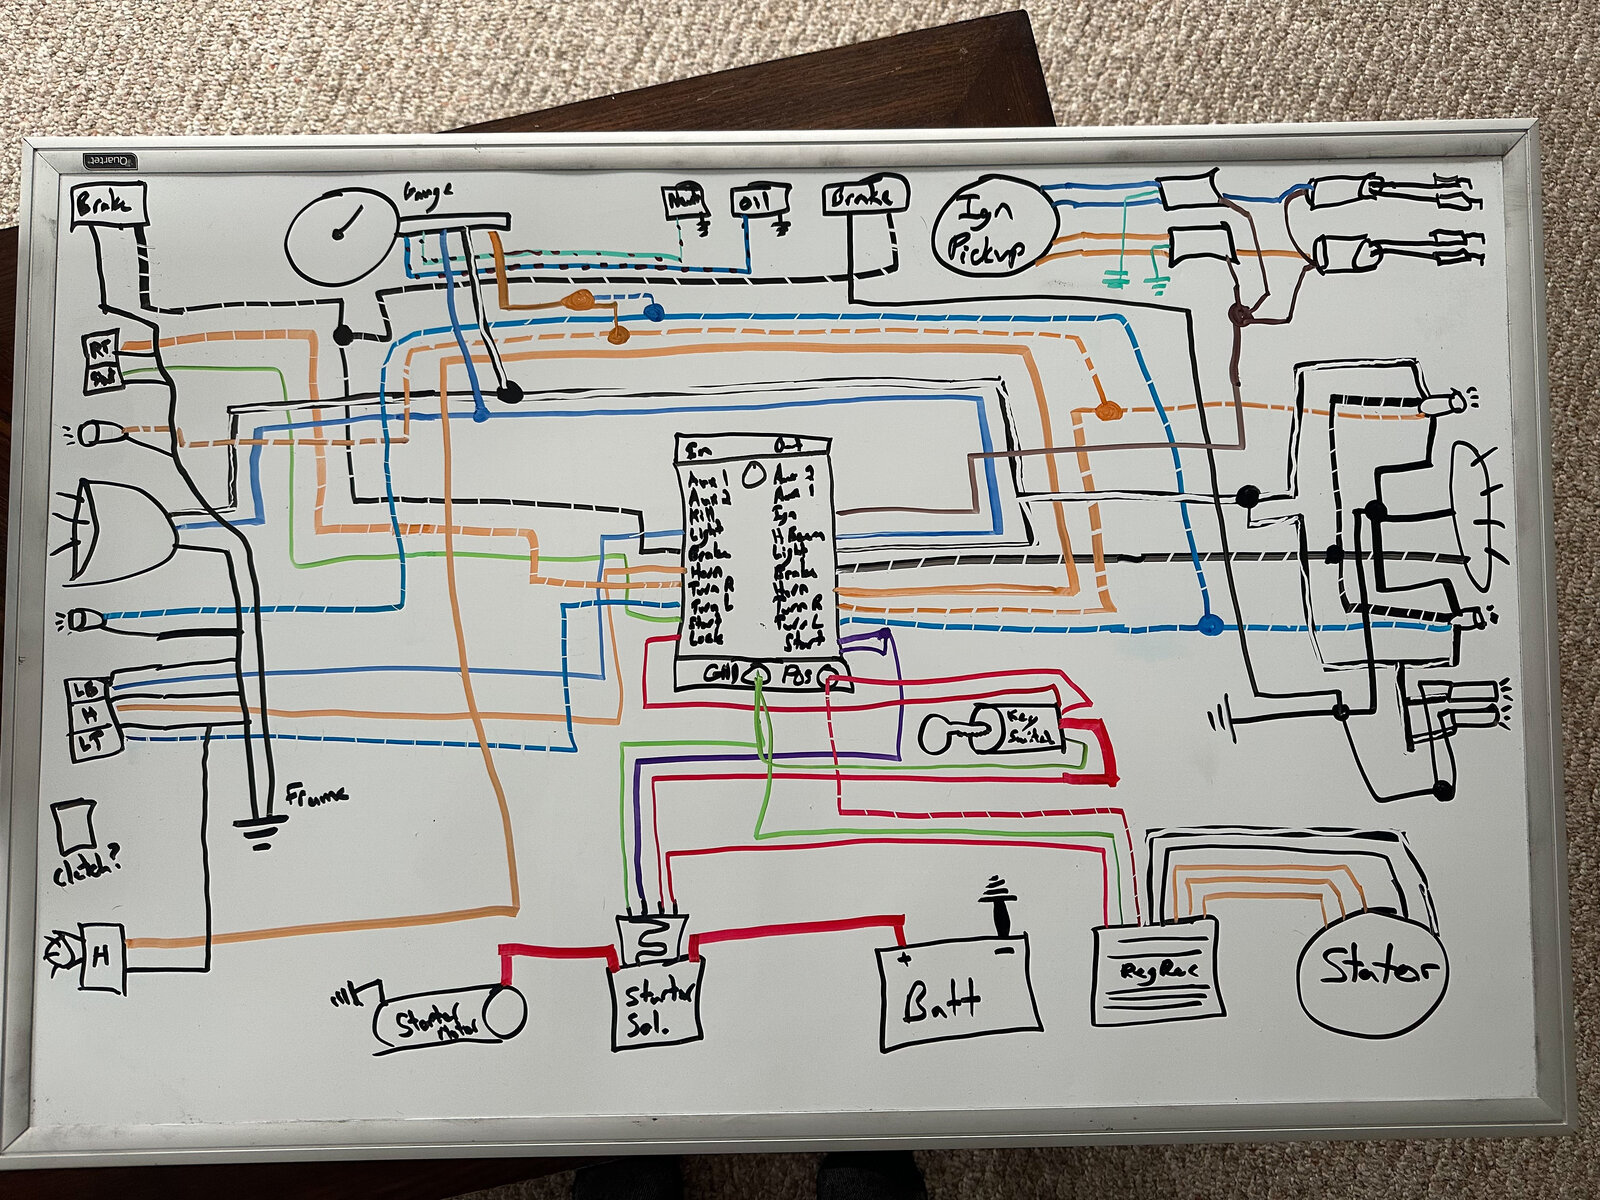 Quartet
Brake
Gauge
Oil
Brake
Ign
Pickup
RT
In Out
Aux 1 Aux 2
Aux 2 Aux 1
Kill Ign
Light H Beam
Brake Light
Horn Brake
Turn R Horn
Turn L Turn R
Start Turn L
Lock Start
GND Pos
LB
H
LT
Key
Switch
Frame
Clutch?
H
Starter
Motor
Starter
Sol.
+ -
Batt
Reg Rec
Stator